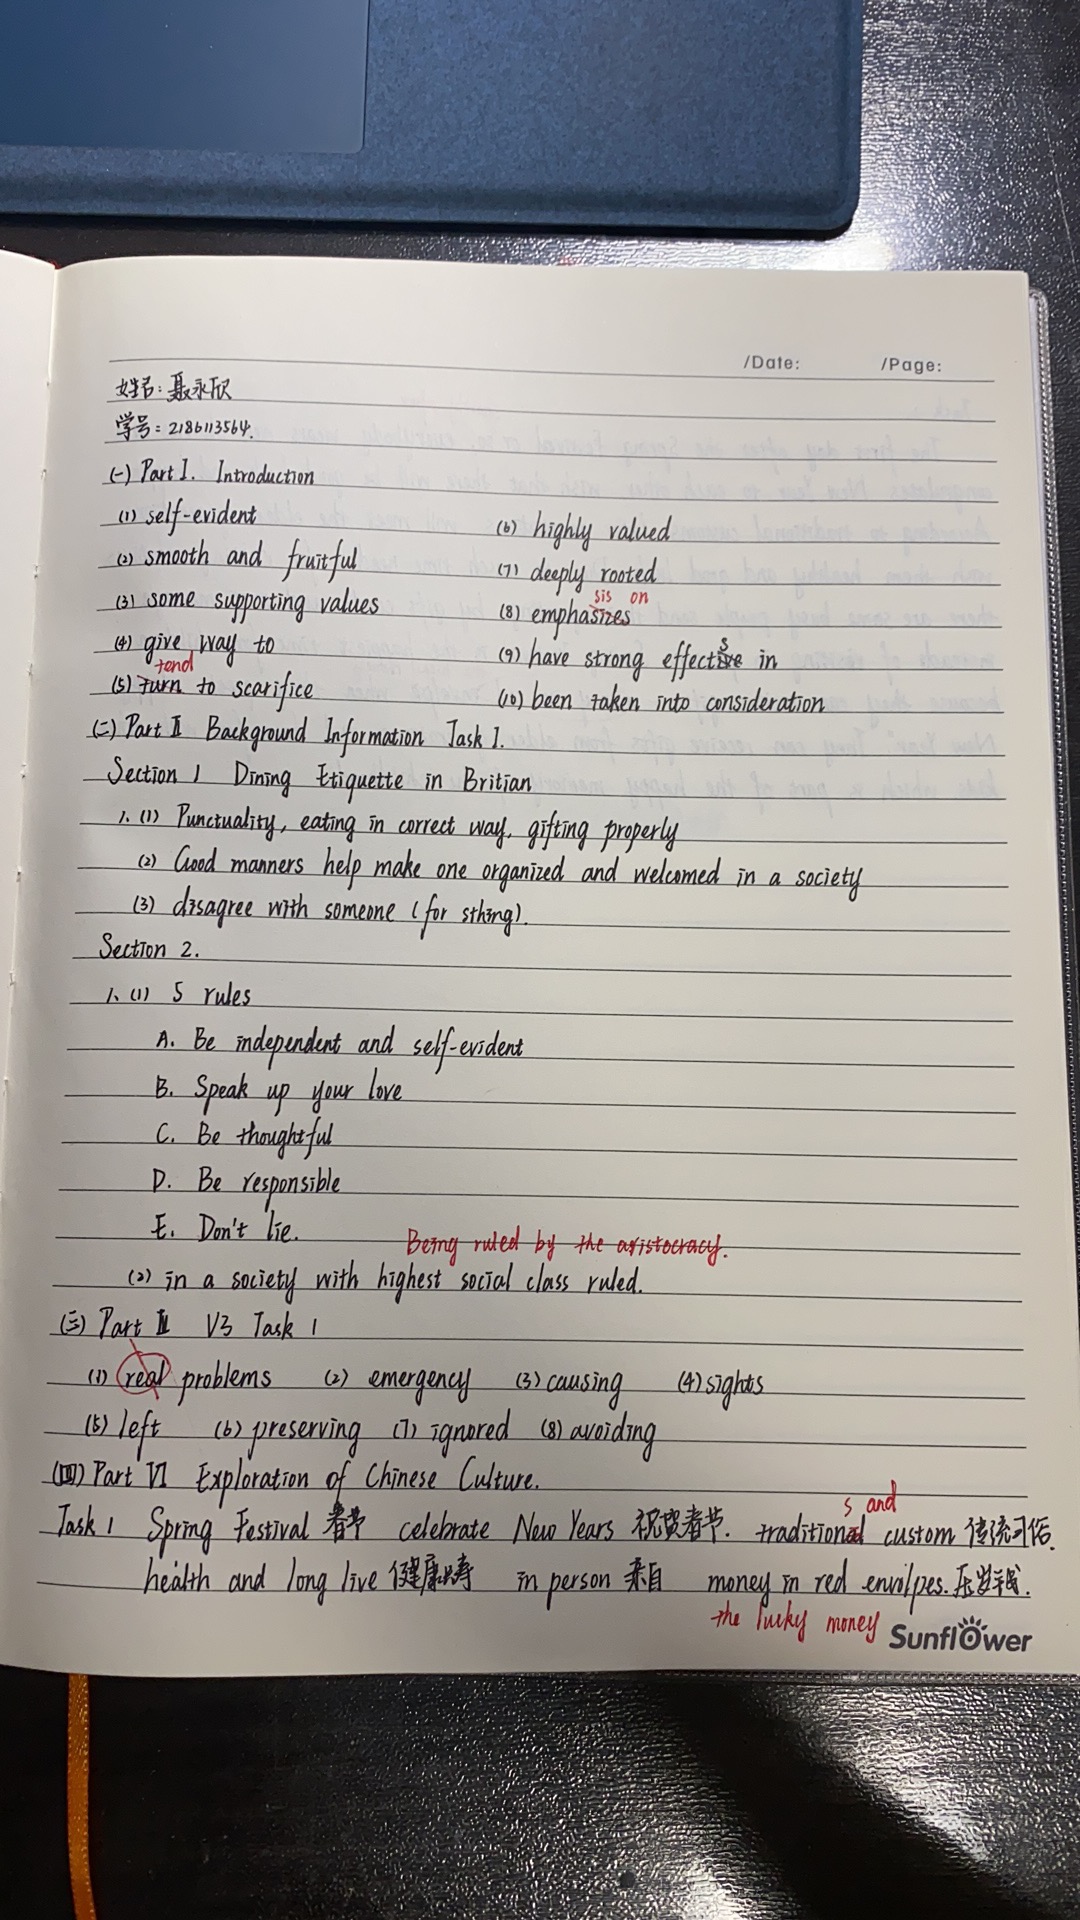 /Date: /Page:
姓名：聂永欣
学号：2186113564.
(一) Part I. Introduction
(1) self-evident (6) highly valued
(2) smooth and fruitful (7) deeply rooted
sis on
(3) some supporting values (8) emphasizes
(4) give way to (9) have strong effects in
tend
(5) turn to scarifice (10) been taken into consideration
(二) Part II Background Information Task 1.
Section 1 Dining Etiquette in Britian
1. (1) Punctuality, eating in correct way, gifting properly
(2) Good manners help make one organized and welcomed in a society
(3) disagree with someone (for sthing).
Section 2.
1. (1) 5 rules
A. Be independent and self-evident
B. Speak up your love
C. Be thoughtful
D. Be responsible
E. Don't lie.
Being ruled by the aristocracy.
(2) in a society with highest social class ruled.
(三) Part III V3 Task 1
(1) real problems (2) emergency (3) causing (4) sights
(5) left (6) preserving (7) ignored (8) avoiding
(四) Part VI Exploration of Chinese Culture.
s and
Task 1 Spring Festival 春节 celebrate New Years 祝贺春节. traditional custom 传统习俗.
health and long live 健康 in person 亲自 money in red envilpes. 压岁钱.
the lucky money
Sunflower